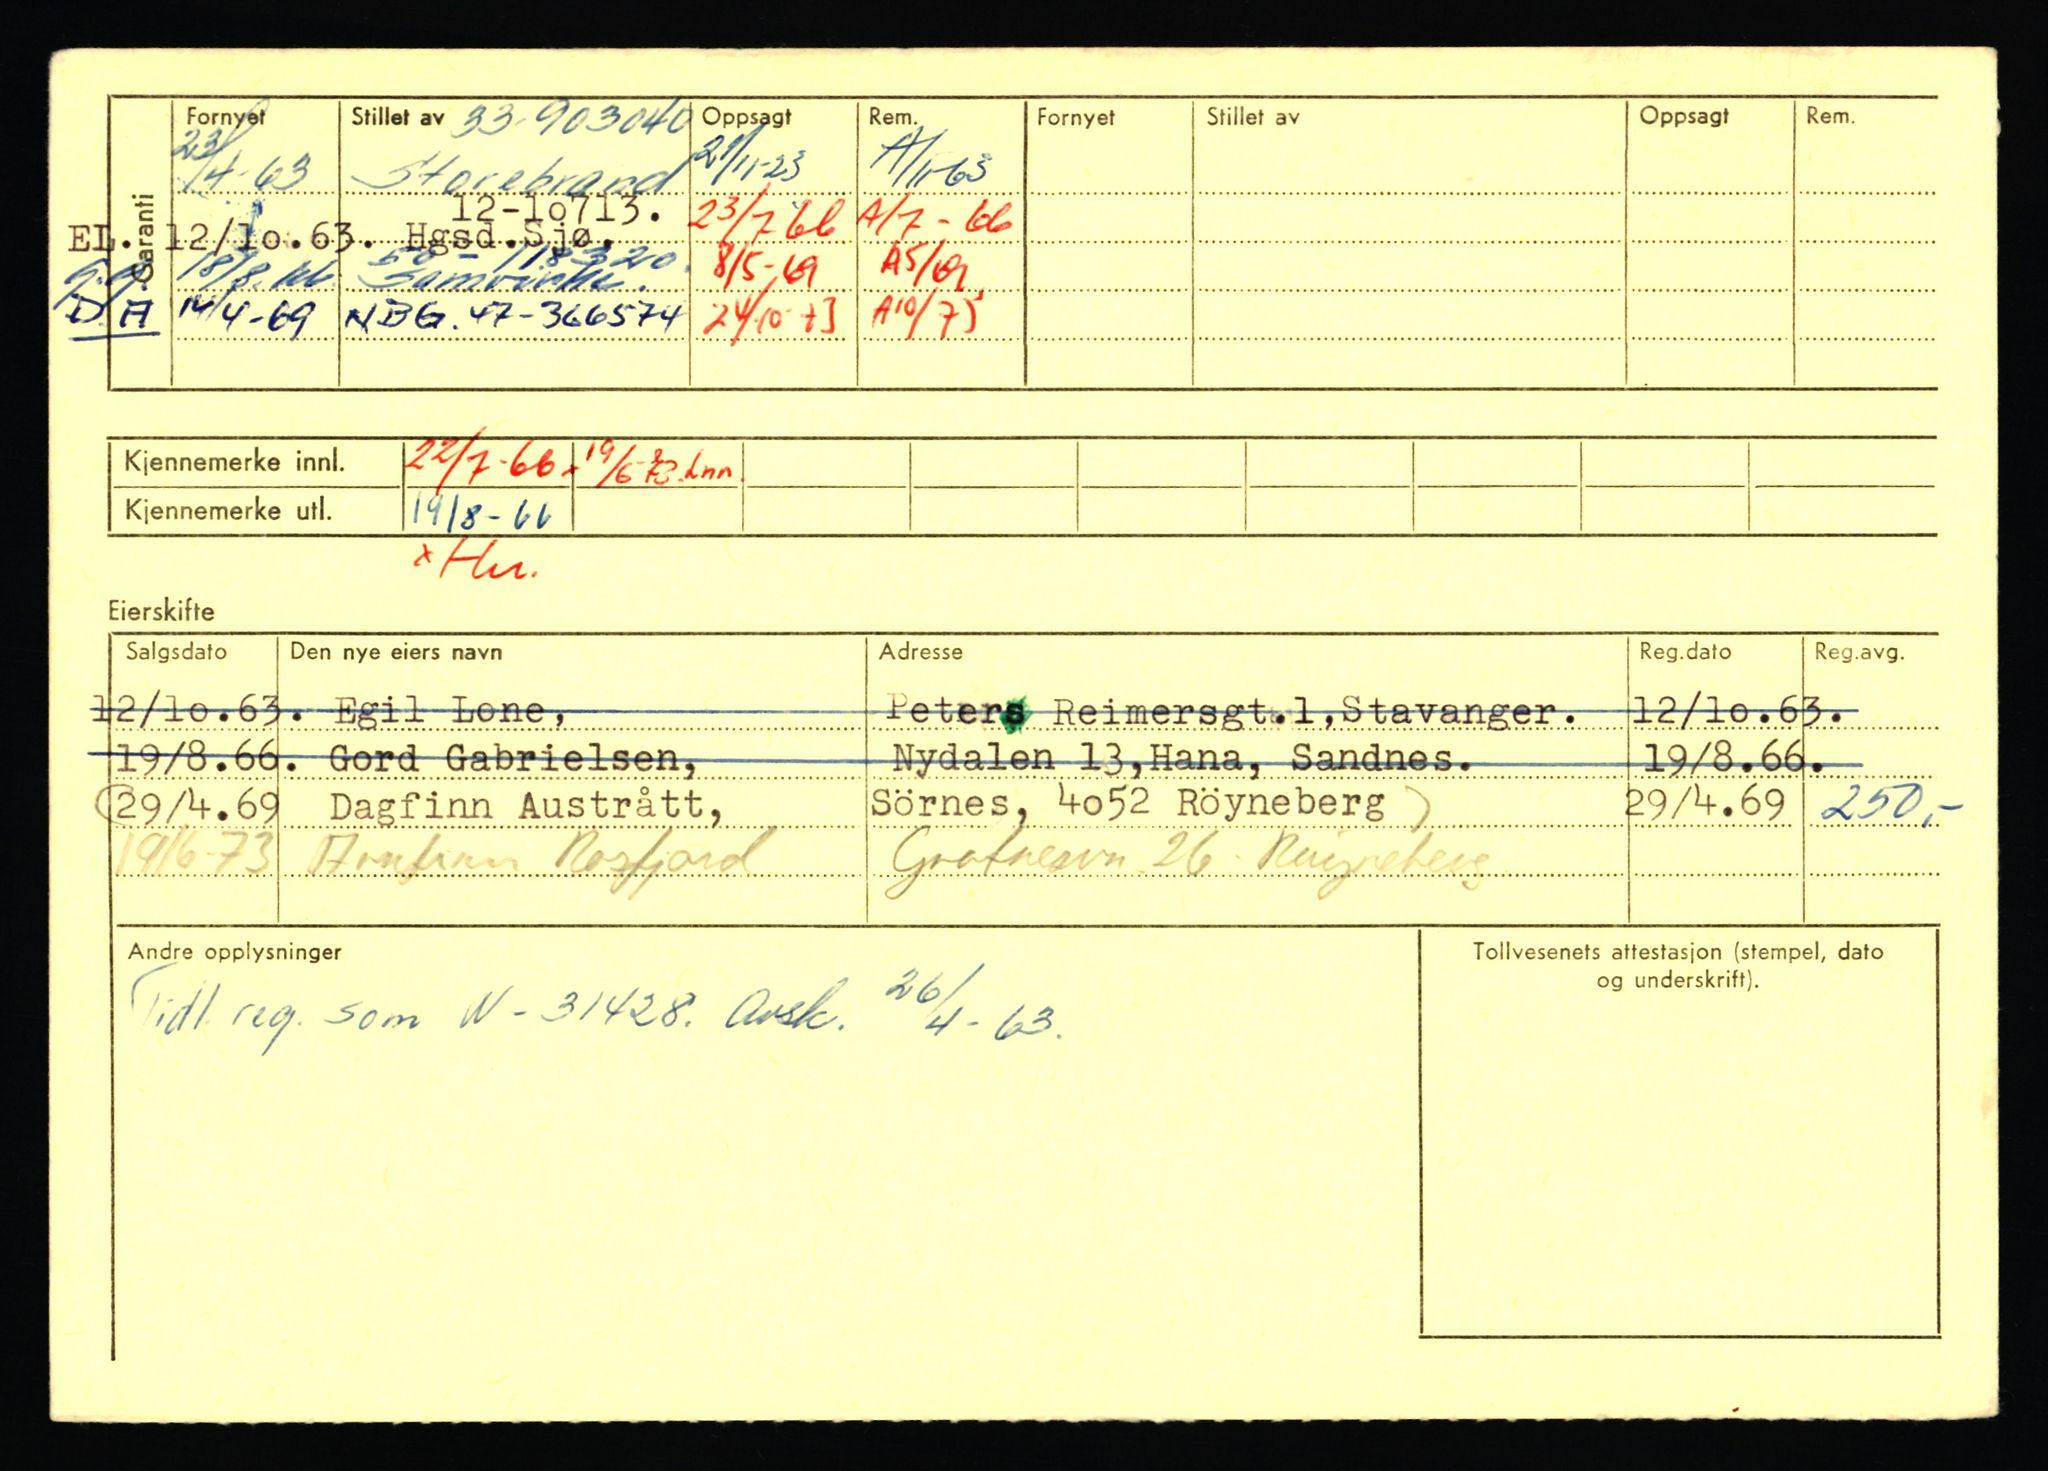 Garanti
Fornyet Stillet av 33-903040 Oppsagt Rem. Fornyet Stillet av Oppsagt Rem.
23/4-63 Storebrand 21/11-23 A/11-63
12-1o713. 23/7 66 A/7-66
EL. 12/1o.63. Hgsd.Sjø.
G.G. 18/8.66 50-118320. 8/5-69 A5/69
Samvirke.
D.A 14/4-69 NBG. 47-366574 24/10-73 A10/73
Kjennemerke innl. 22/7-66. 19/6-73
Kjennemerke utl. 19/8-66
x
Eierskifte
Salgsdato Den nye eiers navn Adresse Reg.dato Reg.avg.
12/1o.63. Egil Lone, Peters Reimersgt.1,Stavanger. 12/1o.63.
19/8.66. Gord Gabrielsen, Nydalen 13,Hana, Sandnes. 19/8.66.
(29/4.69 Dagfinn Austrått, Sörnes, 4o52 Röyneberg) 29/4.69 250,-
19/6-73 Arnfinn Rosfjord 26
Andre opplysninger Tollvesenets attestasjon (stempel, dato
og underskrift).
Tidl. reg. som N-31428. Avsk. 26/4-63.